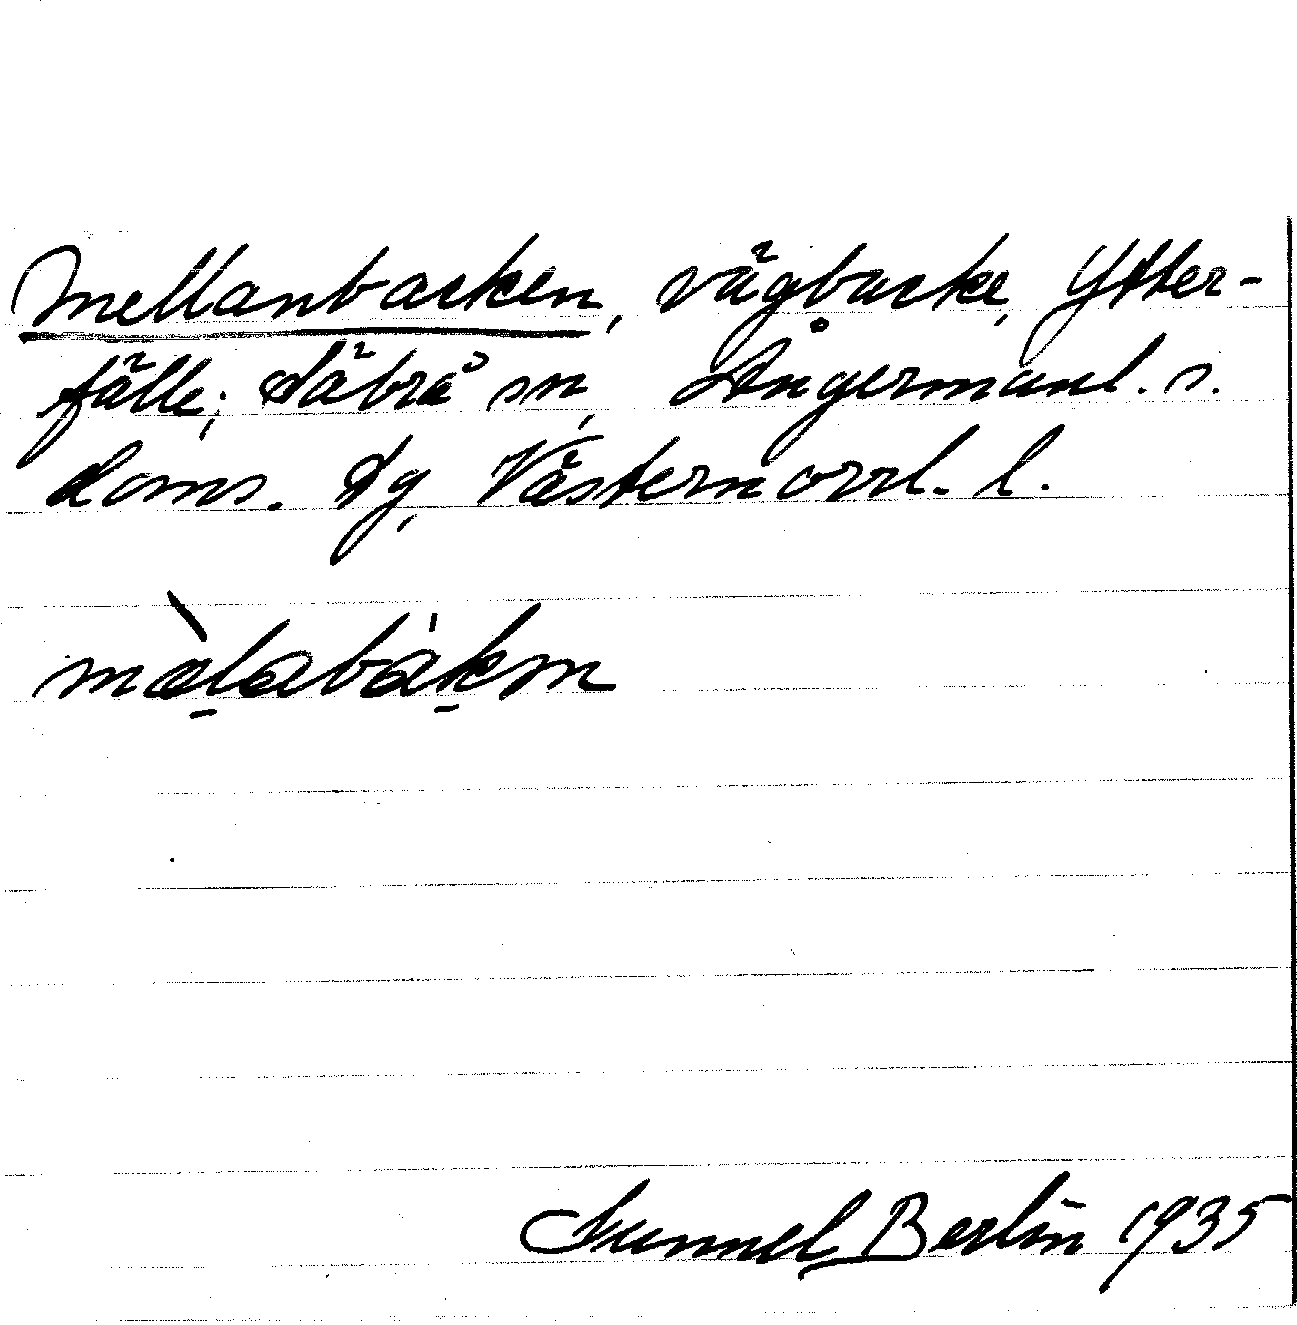 Mellanbacken, vägbacke, Ytter-
fälle; Säbrå sn, Ångermanl. s.
doms. Tg, Västernorrl. l.
Gunnel Berlin 1935